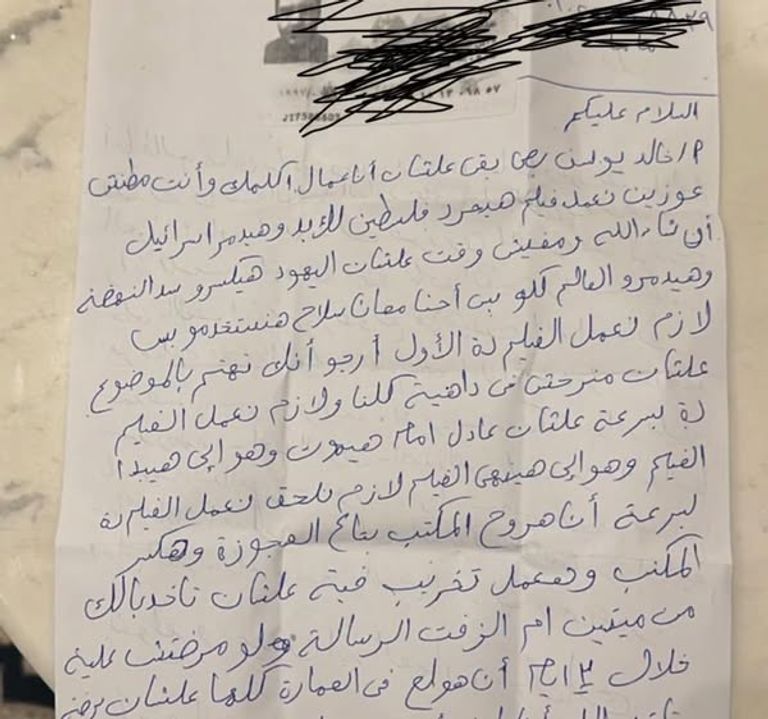 السلام عليكم
أ/خالد يوسف بص بقى علشان أنا عمال اكلمك وأنت مطنش
عوزين نعمل فيلم هيحرر فلسطين للأبد وهيدمر اسرائيل
أن شاء الله ومفيش وقت علشان اليهود هيكسرو سد النهضة
وهيدمرو العالم كلو بس أحنا معانا سلاح هنستخدمو بس
لازم نعمل الفيلم دة الأول أرجو أنك تهتم بالموضوع
علشان منرحش فى داهية كلنا ولازم نعمل الفيلم
دة بسرعة علشان عادل امام هيموت وهو إلى هيبدا
الفيلم وهو إلى هينهى الفيلم لازم نلحق نعمل الفيلم دة
بسرعة أنا هروح المكتب بتاع العجوزة وهكسر
المكتب وهعمل تخريب فية علشان تاخد بالك
من ميتين ام الزفت الرسالة ولو مردتش عليه
خلال أيام أنا هولع فى العمارة كلها علشان